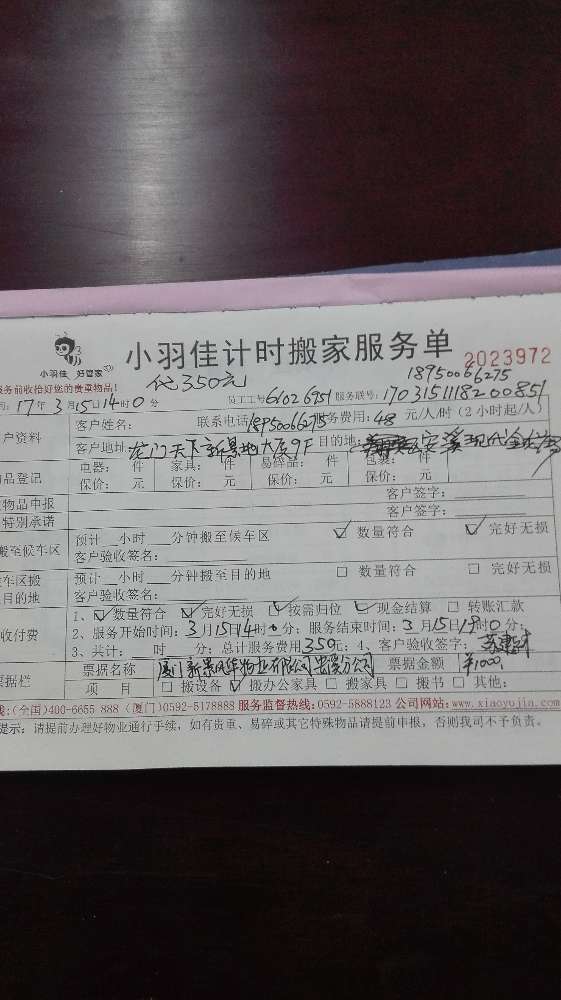 小羽佳计时搬家服务单
小羽佳 好管家
2023972
服务前收恰好您的贵重物品!
18950066275
350元
间: 17年3月15日14时0分
员工工号61026751 服务联号: 1703151118200851
户资料
客户姓名:
联系电话18950066275
务费用: 48 元/人/时(2小时起/人)
客户地址: 龙门天下新景地大厦9F 目的地: 安溪现代
品登记
电器: 件 家具: 件 易碎品: 件 包裹: 件
保价: 元 保价: 元 保价: 元 保价: 元
物品申报
客户签字:
特别承诺
客户签字:
搬至候车区
预计 小时 分钟搬至候车区 ☑ 数量符合 ☑ 完好无损
客户验收签名:
车区搬
目的地
预计 小时 分钟搬至目的地 □ 数量符合 □ 完好无损
客户验收签名:
收付费
1、☑数量符合 ☑完好无损 ☑按需归位 ☑现金结算 □ 转账汇款
2、服务开始时间: 3月15日14时0分; 服务结束时间: 3月15日19时0分;
3、共计: 时 分; 总计服务费用350元; 4、客户验收签字: 苏建
票据栏
票据名称 厦门新景 物业有限公司安溪分公司 票据金额 ¥1000
项 目 □搬设备 ☑搬办公家具 □搬家具 □搬书 □其他:
线:(全国)400-6655 888 (厦门)0592-5178888 服务监督热线:0592-5888123 公司网站:www.xiaoyujia.com
提示: 请提前办理好物业通行手续, 如有贵重、易碎或其它特殊物品请提前申报, 否则我司不予负责。